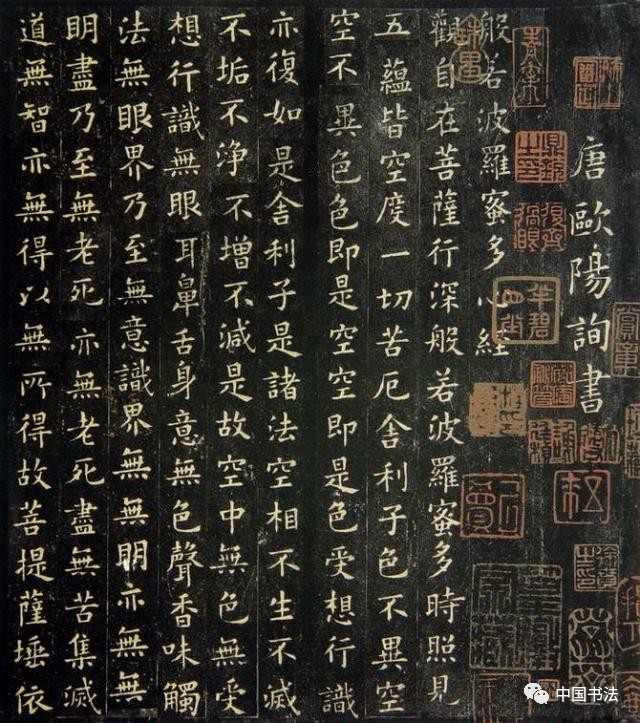 唐歐陽詢書
般若波羅蜜多心經
觀自在菩薩行深般若波羅蜜多時照見
五蘊皆空度一切苦厄舍利子色不異空
空不異色色即是空空即是色受想行識
亦復如是舍利子是諸法空相不生不滅
不垢不淨不增不減是故空中無色無受
想行識無眼耳鼻舌身意無色聲香味觸
法無眼界乃至無意識界無無明亦無無
明盡乃至無老死亦無老死盡無苦集滅
道無智亦無得以無所得故菩提薩埵依
中国书法